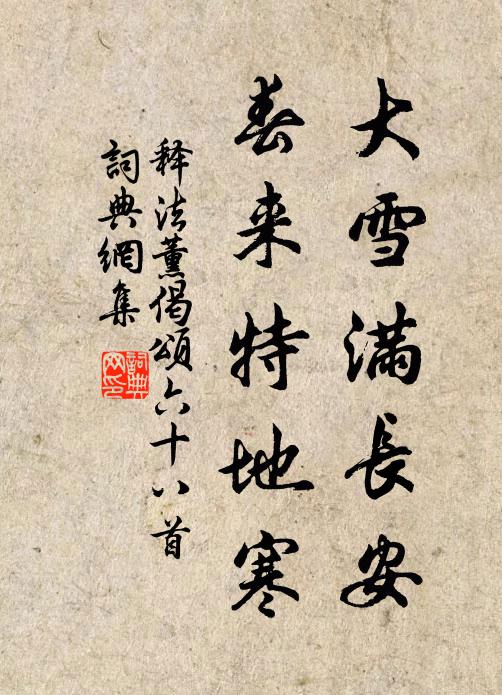 大雪滿長安
春来特地寒
释法薰偈頌六十八首
詞典網集
詞典
网印